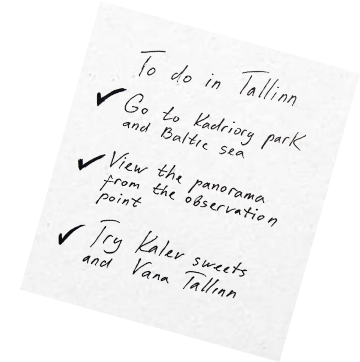 To do in Tallinn
Go to Kadriorg park
and Baltic sea
View the panorama
from the observation
point
Try Kalev sweets
and Vana Tallinn